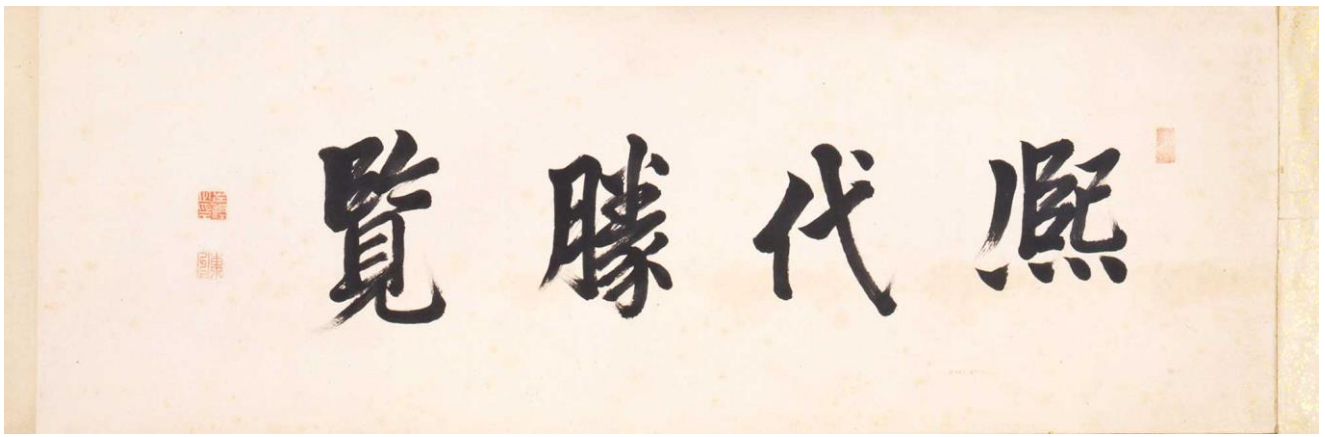 熈代勝覽